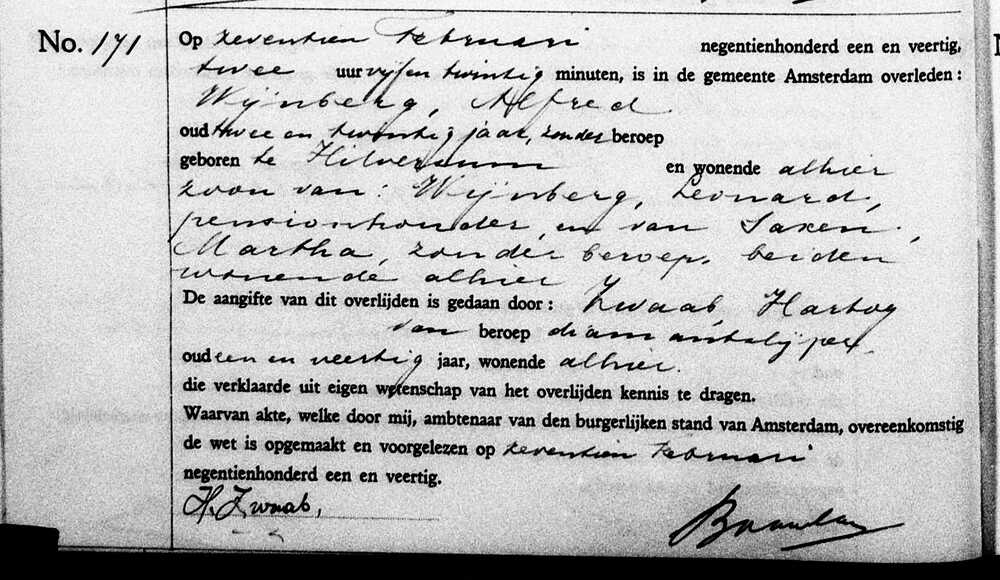 No. 171
Op zeventien Februari negentienhonderd een en veertig,
twee uur vijf en twintig minuten, is in de gemeente Amsterdam overleden:
Wijnberg, Alfred
oud twee en twintig jaar, zonder beroep
geboren te Hilversum en wonende alhier
zoon van: Wijnberg, Leonard,
pensionhouder, en van Saxen,
Martha, zonder beroep, beiden
wonende alhier
De aangifte van dit overlijden is gedaan door: Zwaab, Hartog
van beroep diamantslijper,
oud een en veertig jaar, wonende alhier.
die verklaarde uit eigen wetenschap van het overlijden kennis te dragen.
Waarvan akte, welke door mij, ambtenaar van den burgerlijken stand van Amsterdam, overeenkomstig
de wet is opgemaakt en voorgelezen op zeventien Februari
negentienhonderd een en veertig.
H. Zwaab,